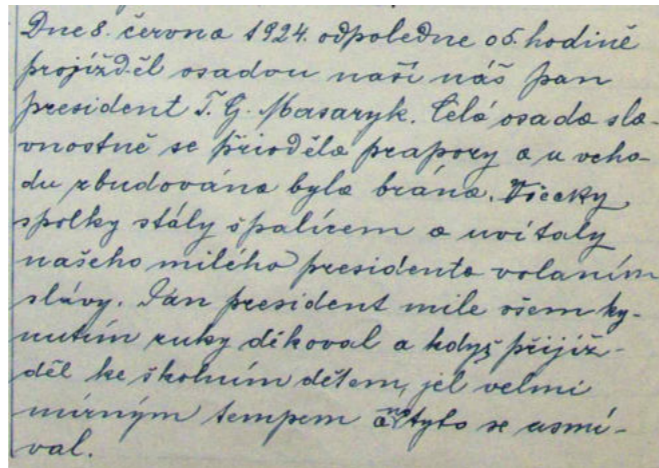 Dne 8. června 1924. odpoledne o 5. hodině
projížděl osadou naší náš pan
president T. G. Masaryk. Celá osada sla-
vnostně se přioděla prapory a u vcho-
du zbudována byla brána. Všecky
spolky stály špalírem a uvítaly
našeho milého presidenta voláním
slávy. Pan president mile všem ky-
nutím ruky děkoval a když přijíž-
děl ke školním dětem, jel velmi
mírným tempem a na tyto se usmí-
val.